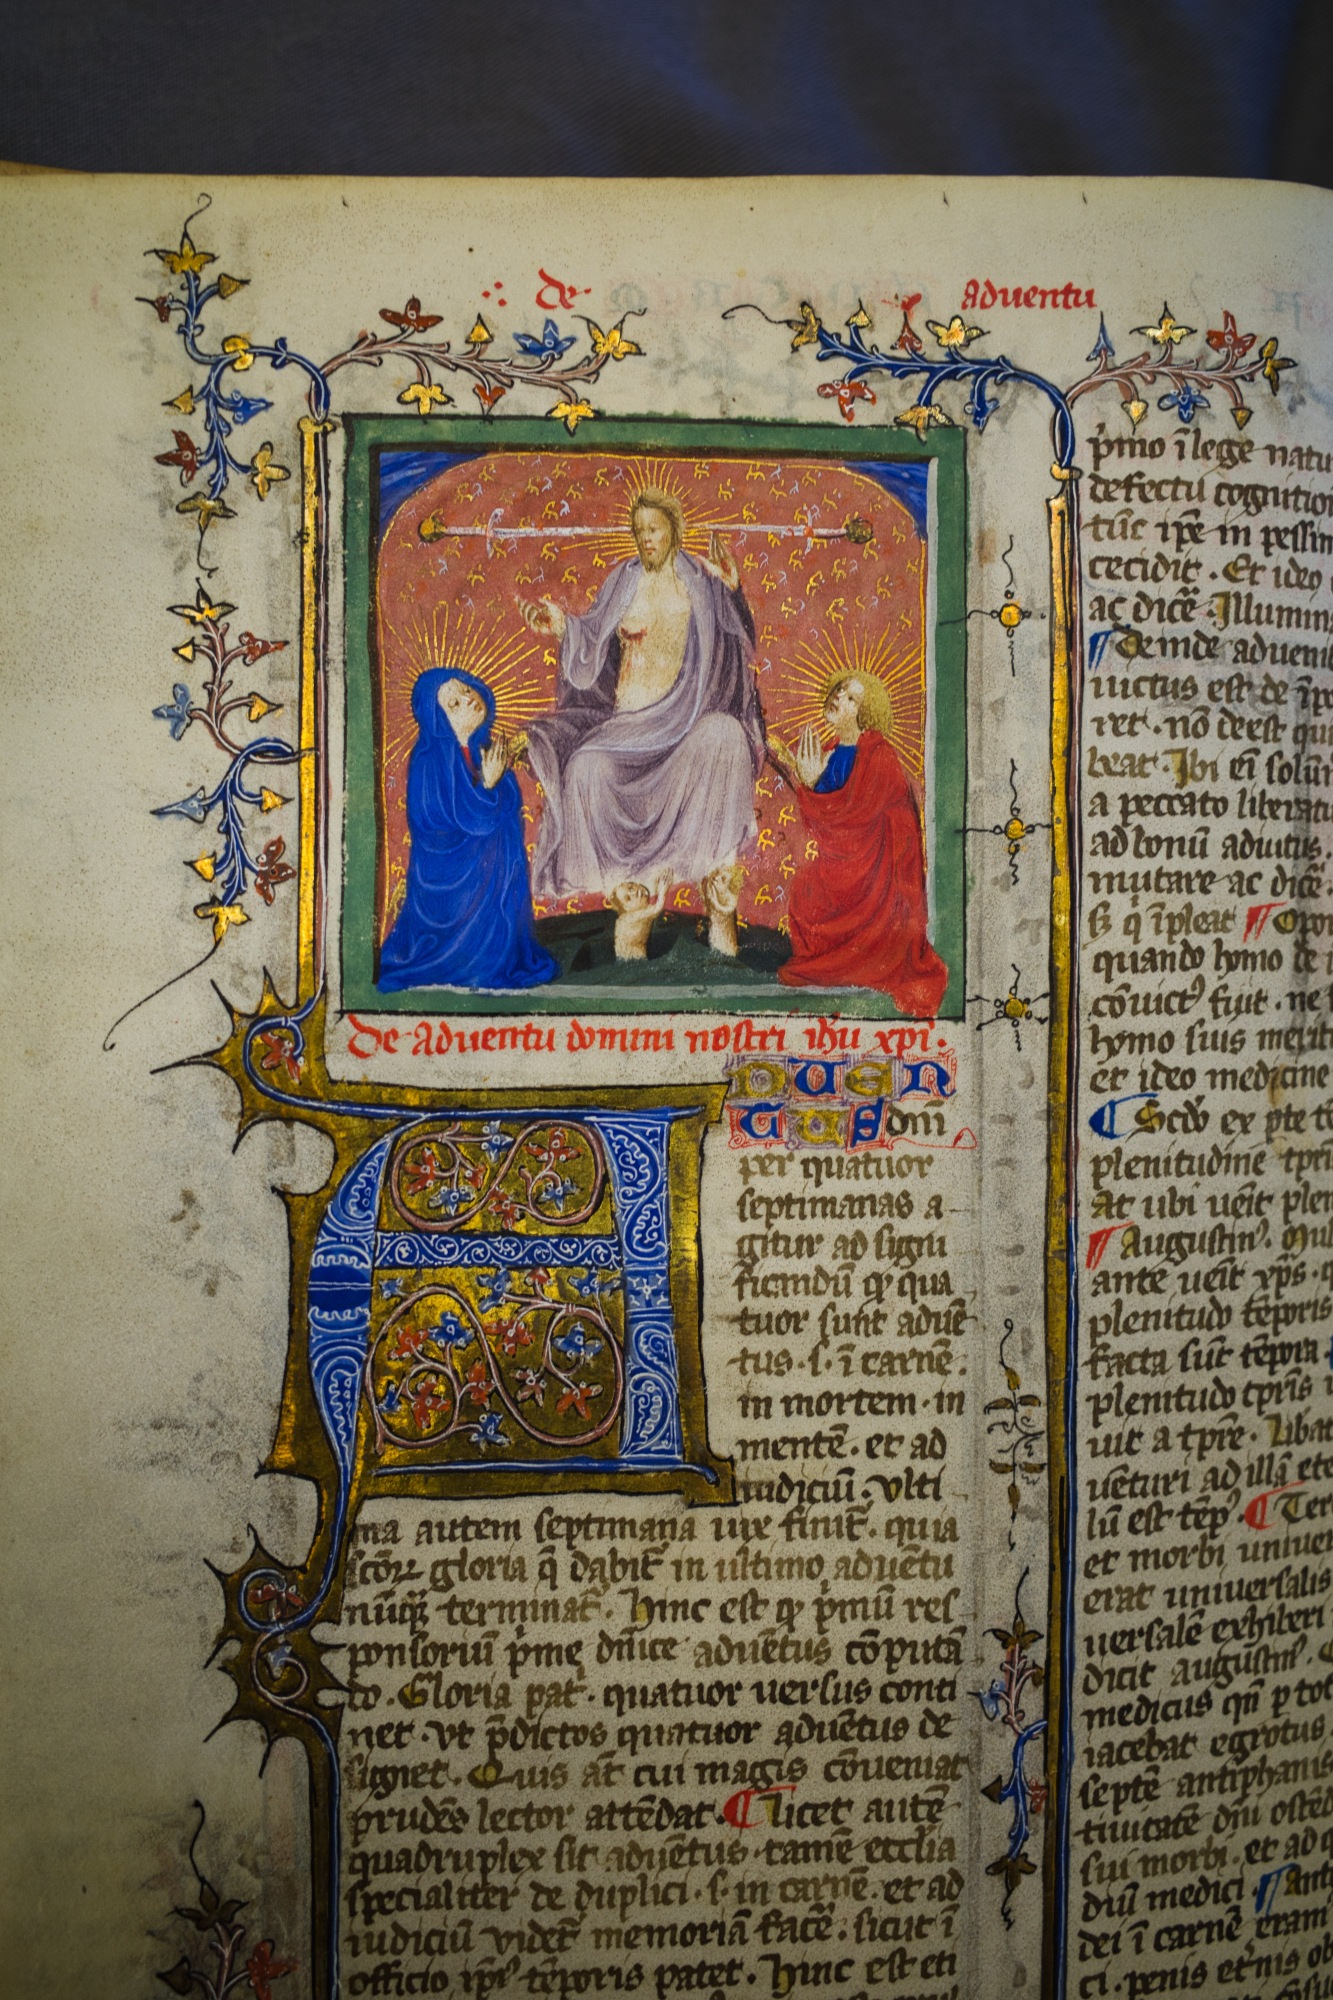 de
adventu
de adventu domini nostri ihū xpī.
ADVEN
TUS dnī
per quatuor
septimanas a-
gitur ad signi
ficandū qꝫ qua
tuor sunt advē
tus. s. ī carnē.
in mortem. in
mentē. et ad
iudiciū. Vlti
ma autem septimana vix finit̄. quia
scōꝝ gloria q̄ dabit̄ in ultimo advētu
nūqꝫ terminat̄. Hinc est qꝫ pͥmū res-
ponsoriū pͥme dnīce advētus cōputā
do. Gloria pat͛. quatuor versus conti
net. vt p̄dictos quatuor advētus de
signet. Quis at̄ cui magis cōveniat
prudēs lector attēdat. ¶ Licet autē
quadruplex sit advētus. tamē eccl̄ia
specialiter de duplici. s. in carnē. et ad
iudiciū videt̄ memoriā facē. sicut ī
officio ip̄iꝰ tēporis patet. Hinc est eti
pͥmo ī lege natu
defectu cognition
tūc ip̄e in pessim
cecidit. Et ideo
ac dicē. Illumin
¶ Deinde adveni
victus est de īpo
ret. nō deest qui
beat. Ibi eī solūm
a peccato liberatu
ad bonū adiutus.
mutare ac dicē
sꝫ qͥ īpleat ¶ Opor
quando homo de
cōvictꝰ fuit. ne
homo suis merit
et ideo medicine
¶ Scdo ex pte tē
plenitudinē tpris
At ubi vēit plen
¶ Augustinꝰ. Mul
ante vēit xp̄s.
plenitudo tēporis
facta sūt tēpora.
plenitudo tp̄ris
vit a tpre. Libat
vēturi ad illā ete
lū est tēpꝰ. ¶ Ter
et morbi univer
erat universalis
versalē exhiberi
dicit augustinꝰ.
medicus qn̄ p tot
iacebat egrotus
septē antiphanis
tivitatē dn̄i ostēd
sui morbi. et ad
diū medici. ¶ ant
dei ī carnē eram
ci. penis et͛nis ob